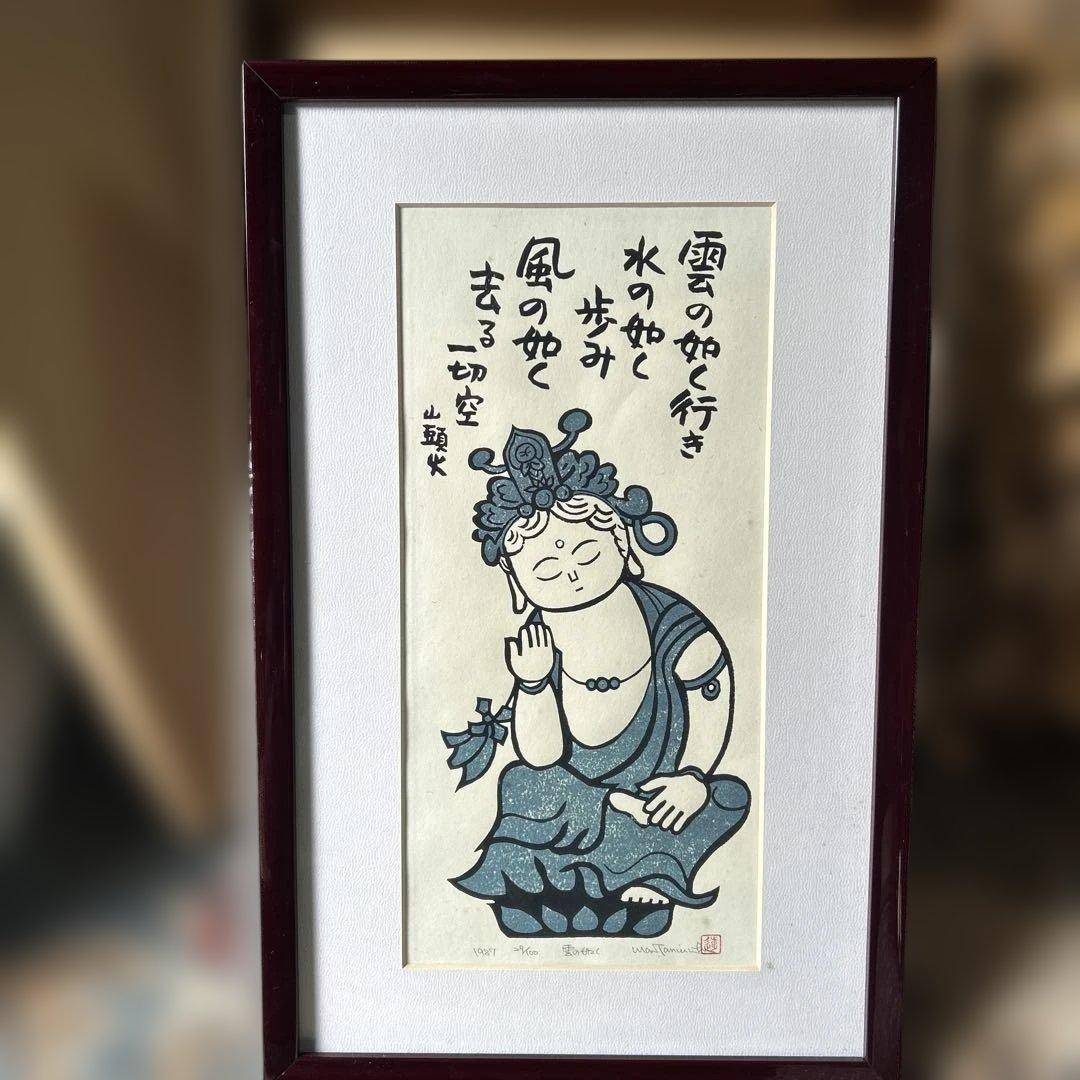 雲の如く行き
水の如く
歩み
風の如く
去る
一切空
山頭火
1987 29/100 雲の如く